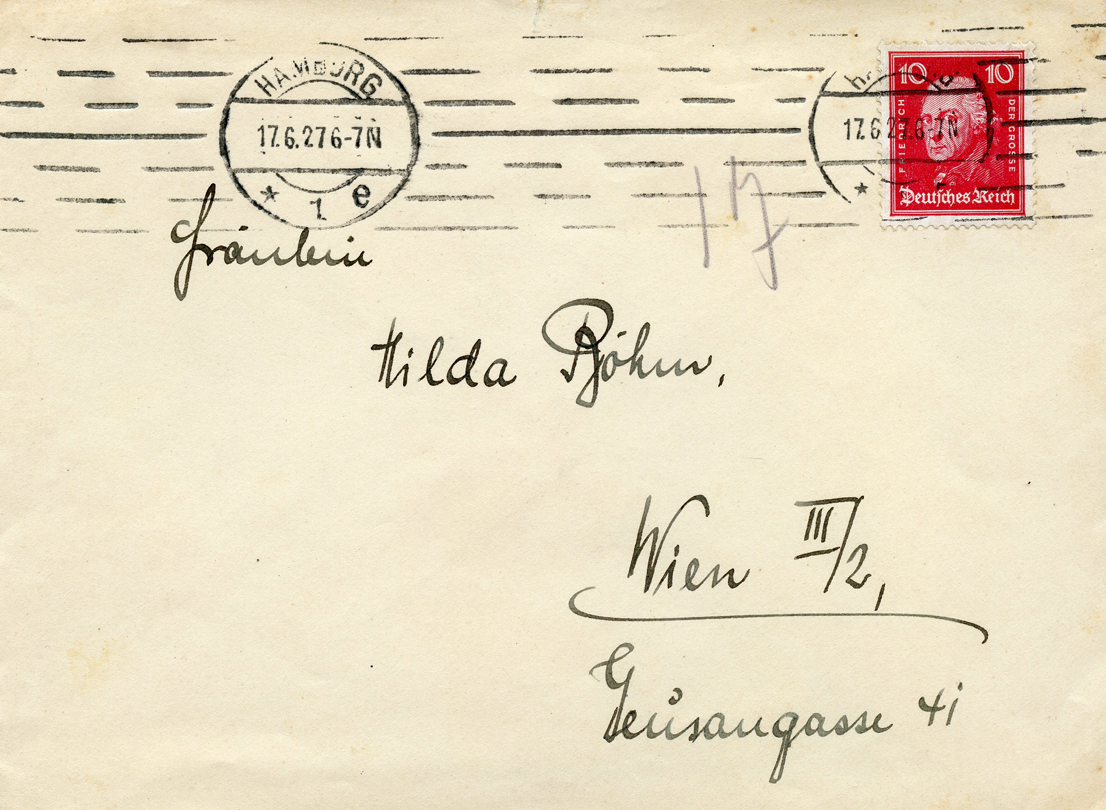 HAMBURG
17.6.27 6-7N
* 1 e
10 10
FRIEDRICH DER GROSSE
17.6.27.6-7N
*
Deutsches Reich
17
Fräulein
Hilda Böhm,
Wien III/2,
Geusaugasse 41